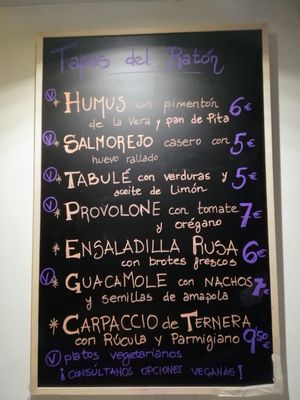 Tapas del Ratón
Ⓥ * HUMUS con pimentón 6€
de la Vera y pan de Pita
Ⓥ * SALMOREJO casero con 5€
huevo rallado
Ⓥ * TABULÉ con verduras y 5€
aceite de Limón
Ⓥ * PROVOLONE con tomate 7€
y orégano
* ENSALADILLA RUSA 6€
con brotes frescos
Ⓥ * GUACAMOLE con NACHOS 7€
y semillas de amapola
* CARPACCIO de TERNERA
con RÚCULA y PARMIGIANO 9'50€
Ⓥ platos vegetarianos
¡CONSÚLTANOS OPCIONES VEGANAS!